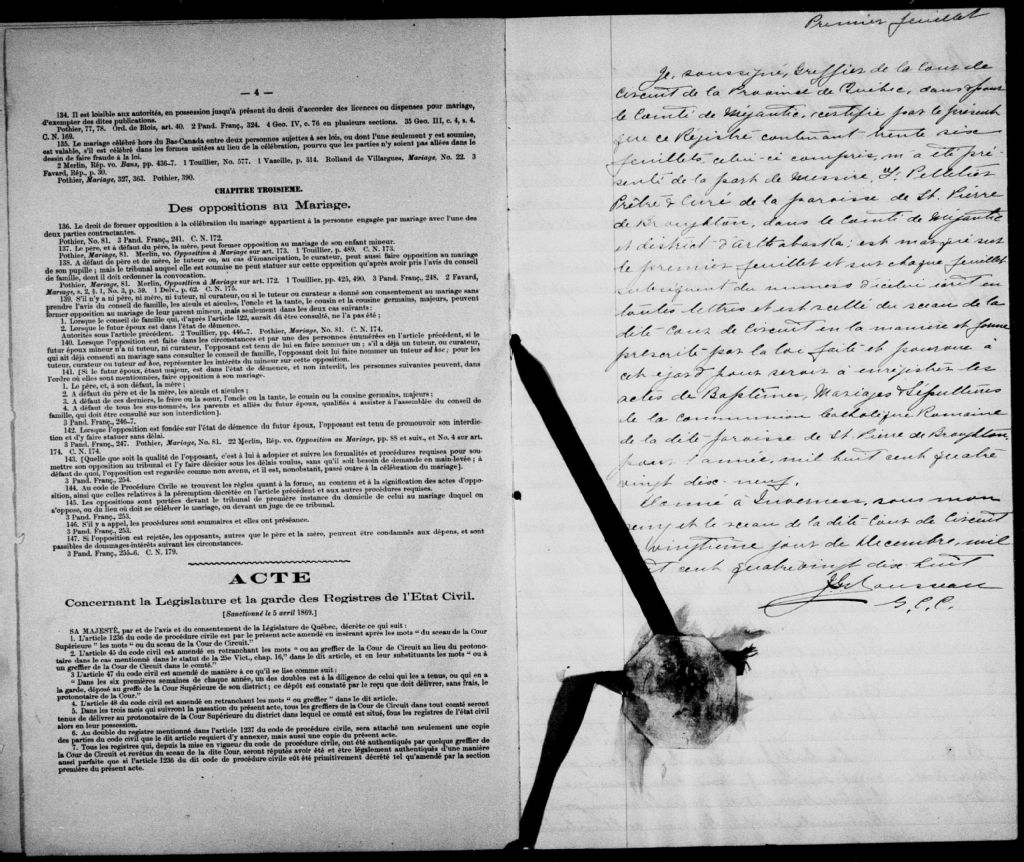 — 4 —
134. Il est loisible aux autorités, en possession jusqu'à présent du droit d'accorder des licences ou dispenses pour mariage,
d'exempter des dites publications.
Pothier, 77, 78. Ord. de Blois, art. 40. 2 Pand. Franç., 324. 4 Geo. IV, c. 76 en plusieurs sections. 35 Geo. III, c. 4, s. 4.
C. N. 169.
135. Le mariage célébré hors du Bas-Canada entre deux personnes sujettes à ses lois, ou dont l'une seulement y est soumise,
est valable, s'il est célébré dans les formes usitées au lieu de la célébration, pourvu que les parties n'y soient pas allées dans le
dessin de faire fraude à la loi.
2 Merlin, Rép. vo. Bans, pp. 436-7. 1 Touillier, No. 577. 1 Vazeille, p. 314. Rolland de Villargues, Mariage, No. 22. 3
Favard, Rép., p. 30.
Pothier, Mariage, 327, 363. Pothier, 390.
CHAPITRE TROISIEME.
Des oppositions au Mariage.
136. Le droit de former opposition à la célébration du mariage appartient à la personne engagée par mariage avec l'une des
deux parties contractantes.
Pothier, No. 81. 3 Pand. Franç., 241. C. N. 172.
137. Le père, et à défaut du père, la mère, peut former opposition au mariage de son enfant mineur.
Pothier, Mariage, 81. Merlin, vo. Opposition à Mariage sur art. 173. 1 Touillier, p. 489. C. N. 173.
138. A défaut de père et de mère, le tuteur ou, au cas d'émancipation, le curateur, peut aussi faire opposition au mariage
de son pupille; mais le tribunal auquel elle est soumise ne peut statuer sur cette opposition qu'après avoir pris l'avis du conseil
de famille, dont il doit ordonner la convocation.
Pothier, Mariage, 81. Merlin, Opposition à Mariage sur art. 172. 1 Touillier, pp. 425, 490. 3 Pand. Franç., 248. 2 Favard,
Mariage, s. 2, § 1, No. 3, p. 59. 1 Delv., p. 62. C. N. 175.
139. S'il n'y a ni père, ni mère, ni tuteur, ni curateur, ou si le tuteur ou curateur a donné son consentement au mariage sans
prendre l'avis du conseil de famille, les aïeuls et aïeules, l'oncle et la tante, le cousin et la cousine germains, majeurs, peuvent
former opposition au mariage de leur parent mineur, mais seulement dans les deux cas suivants:
1. Lorsque le conseil de famille qui, d'après l'article 122, aurait dû être consulté, ne l'a pas été;
2. Lorsque le futur époux est dans l'état de démence.
Autorités sous l'article précédent. 2 Touillier, pp. 446-7. Pothier, Mariage, No. 81. C. N. 174.
140. Lorsque l'opposition est faite dans les circonstances et par une des personnes énumérées en l'article précédent, si le
futur époux mineur n'a ni tuteur, ni curateur, l'opposant est tenu de lui en faire nommer un; s'il a déjà un tuteur, ou curateur,
qui ait déjà consenti au mariage sans consulter le conseil de famille, l'opposant doit lui faire nommer un tuteur ad hoc; pour les
tuteur, curateur ou tuteur ad hoc, représenter les intérêts du mineur sur cette opposition.
141. [Si le futur époux, étant majeur, est dans l'état de démence, et non interdit, les personnes suivantes peuvent, dans
l'ordre où elles sont mentionnées, faire opposition à son mariage.
1. Le père, et, à son défaut, la mère;
2. A défaut du père et de la mère, les aïeuls et aïeules;
3. A défaut de ces derniers, le frère ou la sœur, l'oncle ou la tante, le cousin ou la cousine germains, majeurs;
4. A défaut de tous les sus-nommés, les parents et alliés du futur époux, qualifiés à assister à l'assemblée du conseil de
famille, qui doit être consulté sur son interdiction].
3 Pand. Franç., 246-7.
142. Lorsque l'opposition est fondée sur l'état de démence du futur époux, l'opposant est tenu de promouvoir son interdiction
et d'y faire statuer sans délai.
3 Pand. Franç., 247. Pothier, Mariage, No. 81. 22 Merlin, Rép. vo. Opposition au Mariage, pp. 88 et suiv., et No. 4 sur art.
174. C. N. 174.
143. [Quelle que soit la qualité de l'opposant, c'est à lui à adopter et suivre les formalités et procédures requises pour soumettre
son opposition au tribunal et l'y faire décider sous les délais voulus, sans qu'il soit besoin de demande en main-levée; à
défaut de quoi, l'opposition est regardée comme non avenu, et il est, nonobstant, passé outre à la célébration du mariage].
3 Pand. Franç., 254.
144. Au code de Procédure Civile se trouvent les règles quant à la forme, au contenu et à la signification des actes d'opposition,
ainsi que celles relatives à la péremption décrétée en l'article précédent et aux autres procédures requises.
145. Les oppositions sont portées devant le tribunal de première instance du domicile de celui au mariage duquel on
s'oppose, ou du lieu où doit se célébrer le mariage, ou devant un juge de ce tribunal.
3 Pand. Franç., 253.
146. S'il y a appel, les procédures sont sommaires et elles ont préséance.
3 Pand. Franç., 253.
147. Si l'opposition est rejetée, les opposants, autres que le père et la mère, peuvent être condamnés aux dépens, et sont
passibles de dommages-intérêts suivant les circonstances.
3 Pand. Franç., 255-6. C. N. 179.
ACTE
Concernant la Législature et la garde des Registres de l'Etat Civil.
[Sanctionné le 5 avril 1869.]
SA MAJESTÉ, par et de l'avis et du consentement de la Législature de Québec, décrète ce qui suit:
1. L'article 1236 du code de procédure civile est par le présent acte amendé en insérant après les mots "du sceau de la Cour
Supérieure" les mots "ou du sceau de la Cour de Circuit."
2. L'article 45 du code civil est amendé en retranchant les mots "ou au greffier de la Cour de Circuit au lieu du protonotaire
dans le cas mentionné dans le statut de la 25e Vict., chap. 16," dans le dit article, et en leur substituants les mots "ou à
un greffier de la Cour de Circuit dans le comté."
3 L'article 47 du code civil est amendé de manière à ce qu'il se lise comme suit:
"Dans les six premières semaines de chaque année, un des doubles est à la diligence de celui qui les a tenus, ou qui en a
la garde, déposé au greffe de la Cour Supérieure de son district; ce dépôt est constaté par le reçu que doit délivrer, sans frais, le
protonotaire de la Cour."
4. L'article 48 du code civil est amendé en retranchant les mots "ou greffier" dans le dit article.
5. Dans les trois mois qui suivront la passation du présent acte, tous les greffiers de la Cour de Circuit dans tout comté seront
tenus de délivrer au protonotaire de la Cour Supérieure du district dans lequel ce comté est situé, tous les registres de l'état civil
alors en leur possession.
6. Au double du registre mentionné dans l'article 1237 du code de procédure civile, sera attaché non seulement une copie
des parties du code civil que le dit article requiert d'y annexer, mais aussi une copie du présent acte.
7. Tous les registres qui, depuis la mise en vigueur du code de procédure civile, ont été authentiqués par quelque greffier de
la Cour de Circuit et revêtus du sceau de la dite Cour, seront réputés avoir été et être légalement authentiqués d'une manière
aussi parfaite que si l'article 1236 du dit code de procédure civile eût été primitivement décrété tel qu'amendé par la section
première du présent acte.
Premier feuillet
Je, soussigné, Greffier de la Cour de
Circuit de la Province de Québec, dans & pour
le Comté de Mégantic, certifie par le présent
que ce Registre contenant trente six
feuillets celui-ci compris, m'a été pré-
senté de la part de Messire, Pelletier
Prêtre & Curé de la paroisse de St. Pierre
de Broughton, dans le Comté de Mégantic
et district d'Arthabaska; est marqué sur
le premier feuillet et sur chaque feuillet
subséquent du numéro d'icelui écrit en
toutes lettres et est scellé du sceau de la
dite Cour de Circuit en la manière et forme
prescrite par la loi faite et pourvue à
cet égard pour servir à enrégistrer les
actes de Baptêmes, Mariages & Sépultures
de la communion Catholique Romaine
de la dite paroisse de St. Pierre de Broughton
pour l'année mil huit cent quatre
vingt dix-neuf.
Donné à Inverness, sous mon
seing et le sceau de la dite Cour de Circuit
vingtième jour de Décembre, mil
cent quatre vingt dix huit
Rousseau
G. C. C.